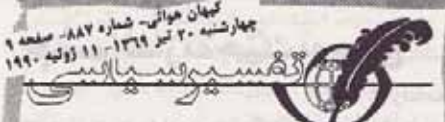 کیهان هوائی- شماره ۸۸۷- صفحه ۹
چهارشنبه ۲۰ تیر ۱۳۶۹- ۱۱ ژوئیه ۱۹۹۰
تفسیر سیاسی